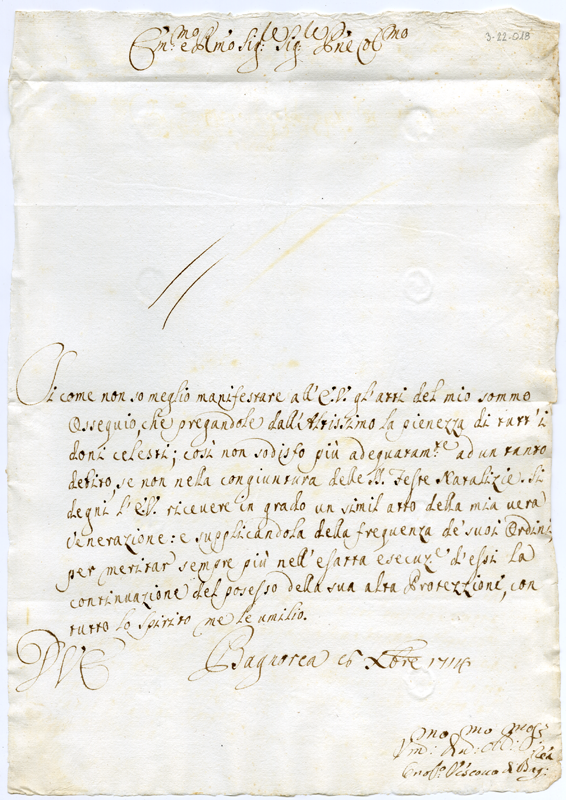 Em.mo e Rmo Sig.e Sig.e Pne Col.mo
3-22-018
Si come non so meglio manifestare all'E.V. gl'atti del mio sommo
Ossequio, che pregandole dall'Altissimo la pienezza di tutt'i
doni celesti; così non sodisfo più adeguatam.te ad un tanto
debito, se non nella congiuntura delle SS. Feste Natalizie. Si
degni l'E.V. ricevere in grado un simil atto della mia vera
venerazione: e supplicandola della frequenza de' suoi Ordini,
per meritar sempre più nell'esatta esecuze d'essi la
continuazione del posesso della sua alta Protezzione, con
tutto lo spirito me le umilio.
DVE
Bagnorea Xbre
Vescovo di Bag: